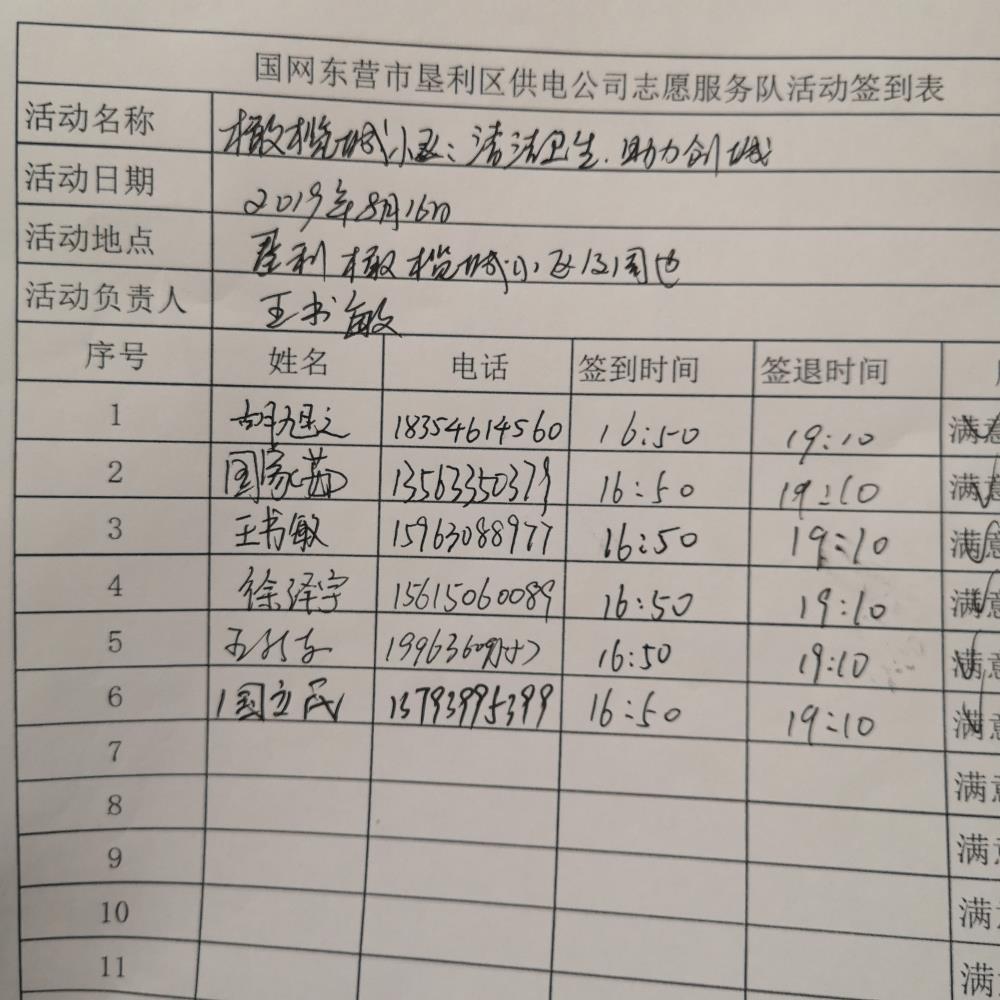 国网东营市垦利区供电公司志愿服务队活动签到表
活动名称 橄榄城小区:清洁卫生.助力创城
活动日期 2019年8月16日
活动地点 垦利橄榄城小区及周边
活动负责人 王书敏
序号 姓名 电话 签到时间 签退时间
1 胡旭文 18354614560 16:50 19:10 满意
2 国家茹 13563350379 16:50 19:10 满意
3 王书敏 15963088977 16:50 19:10 满意
4 徐泽宇 15615060089 16:50 19:10 满意
5 16:50 19:10 满意
6 国立民 13793995399 16:50 19:10 满意
7 满意
8 满意
9 满意
10 满
11 满